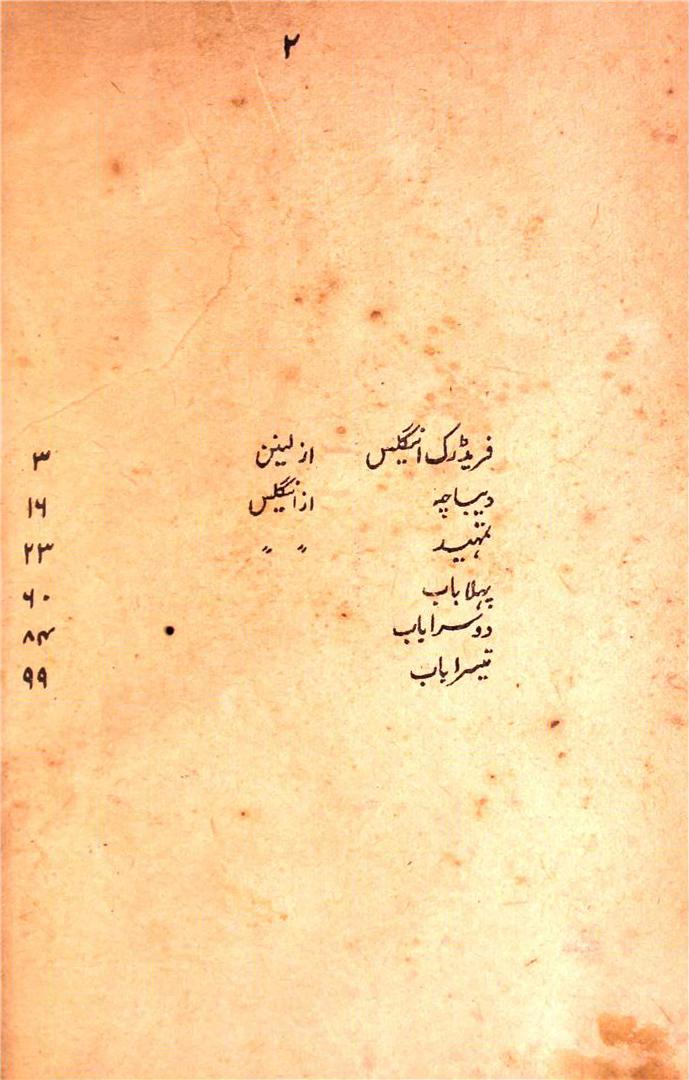 ۲
فریڈرک اینگلس از لینن ۳
دیباچہ از اینگلس ۱۶
تمہید " " ۲۳
پہلا باب ۶۰
دوسرا باب ۸۴
تیسرا باب ۹۹